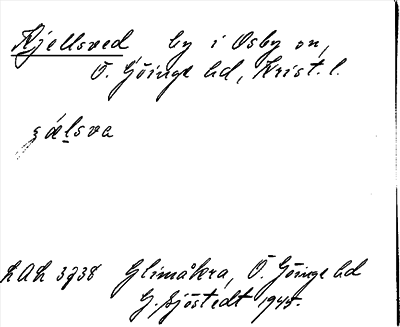 Kjellsved by i Osby sn,
Ö. Göinge hd, Krist. l.
LAL 3738 Glimåkra, Ö. Göinge hd
G. Sjöstedt 1945.